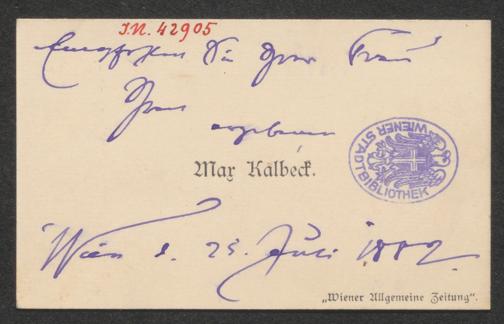 I.N. 42905
Empfehlen Sie Ihrer Frau
Ihr
ergebener
Max Kalbeck.
WIENER STADTBIBLIOTHEK
Wien d. 25. Juli 1882.
„Wiener Allgemeine Zeitung“.